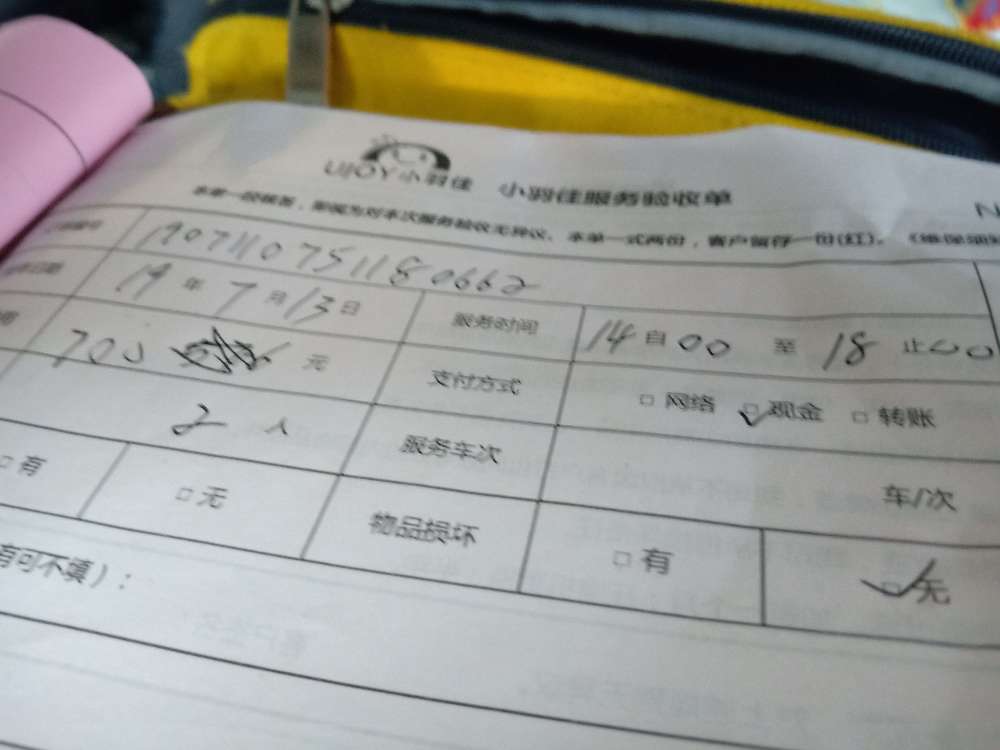 UJOY小羽佳 小羽佳服务验收单
本单一经签署，即视为对本次服务验收无异议。本单一式两份，客户留存一份(红)。
190711075118 0662
19 年 7 月 13 日 服务时间 14 自 00 至 18 止 00
700 元 支付方式 □ 网络 ☑ 现金 □ 转账
2 人 服务车次 车/次
□ 有 □ 无 物品损坏 □ 有 ☑ 无
有可不填）：